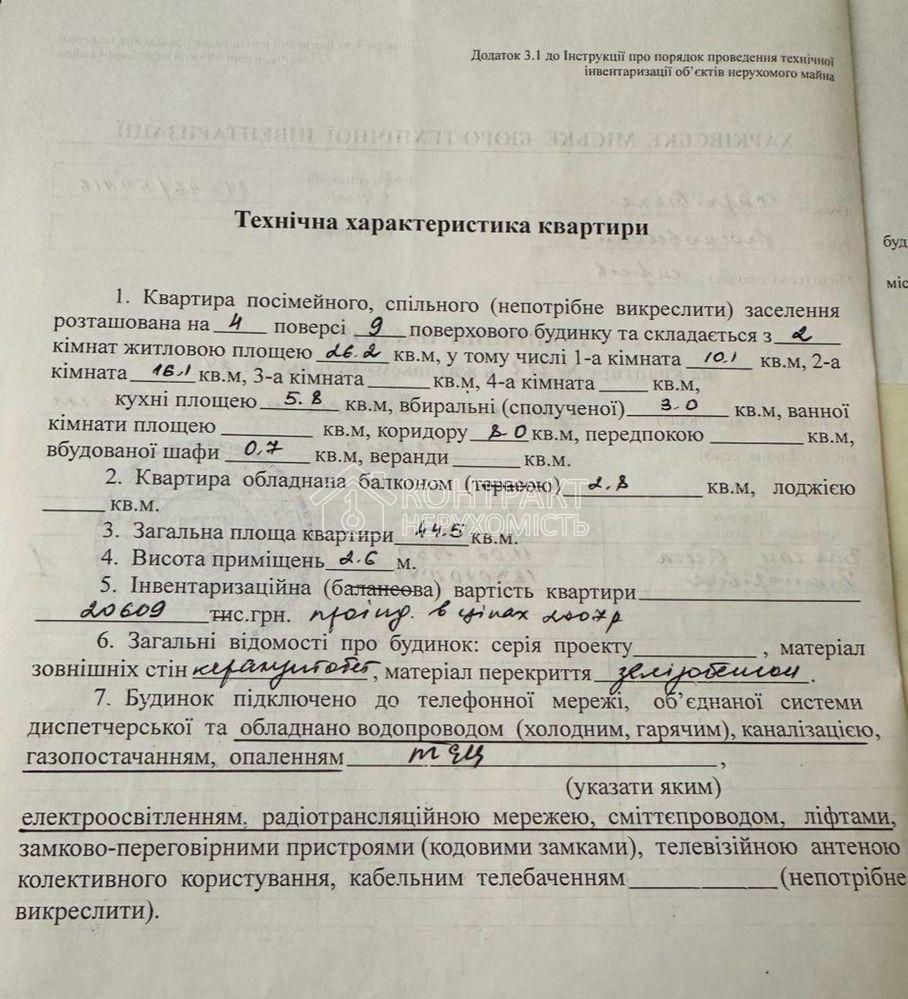 Додаток 3.1 до Інструкції про порядок проведення технічної
інвентаризації об’єктів нерухомого майна
ХАРКІВСЬКЕ МІСЬКЕ БЮРО ТЕХНІЧНОЇ ІНВЕНТАРИЗАЦІЇ
Технічна характеристика квартири
буд
міс
1. Квартира посімейного, спільного (непотрібне викреслити) заселення
розташована на 4 поверсі 9 поверхового будинку та складається з 2
кімнат житловою площею 26.2 кв.м, у тому числі 1-а кімната 10.1 кв.м, 2-а
кімната 16.1 кв.м, 3-а кімната ______ кв.м, 4-а кімната _____ кв.м,
кухні площею 5.8 кв.м, вбиральні (сполученої) 3.0 кв.м, ванної
кімнати площею ________ кв.м, коридору 8.0 кв.м, передпокою ________ кв.м,
вбудованої шафи 0.7 кв.м, веранди ______ кв.м.
2. Квартира обладнана балконом (терасою) 2.8 кв.м, лоджією
_____ кв.м.
КОНТРАКТ
НЕРУХОМІСТЬ
3. Загальна площа квартири 44.5 кв.м.
4. Висота приміщень 2.6 м.
5. Інвентаризаційна (балансова) вартість квартири
20609 тис.грн. проінд. в цінах 2007р
6. Загальні відомості про будинок: серія проекту__________, матеріал
зовнішніх стін керамзитобет, матеріал перекриття залізобетон.
7. Будинок підключено до телефонної мережі, об’єднаної системи
диспетчерської та обладнано водопроводом (холодним, гарячим), каналізацією,
газопостачанням, опаленням ТЕЦ,
(указати яким)
електроосвітленням, радіотрансляційною мережею, сміттєпроводом, ліфтами,
замково-переговірними пристроями (кодовими замками), телевізійною антеною
колективного користування, кабельним телебаченням ____________(непотрібне
викреслити).